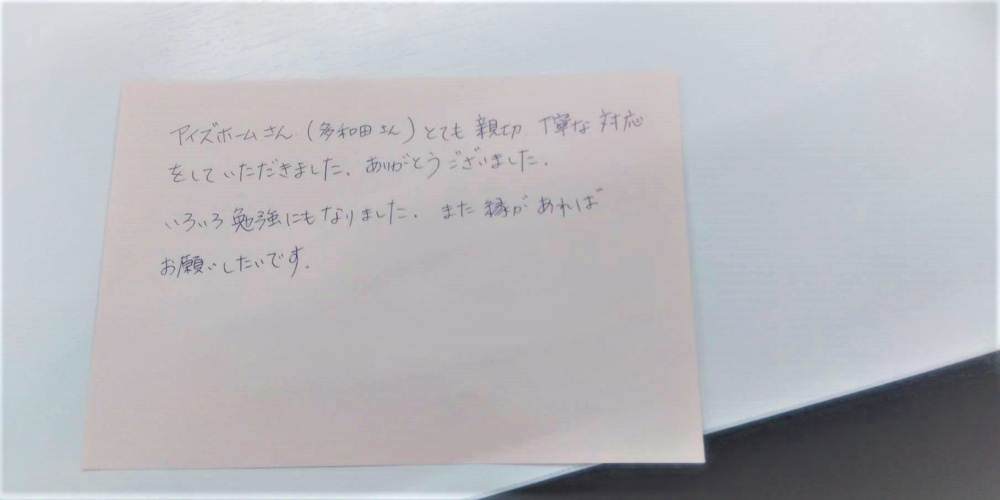 アイズホームさん(多和田さん)とても親切 丁寧な対応
をしていただきました。ありがとうございました。
いろいろ勉強にもなりました。また縁があれば
お願いしたいです。